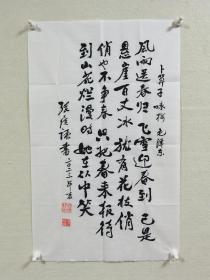 卜算子 咏梅 毛泽东
风雨送春归 飞雪迎春到 已是
悬崖百丈冰 犹有花枝俏
俏也不争春 只把春来报 待
到山花烂漫时 她在丛中笑
书